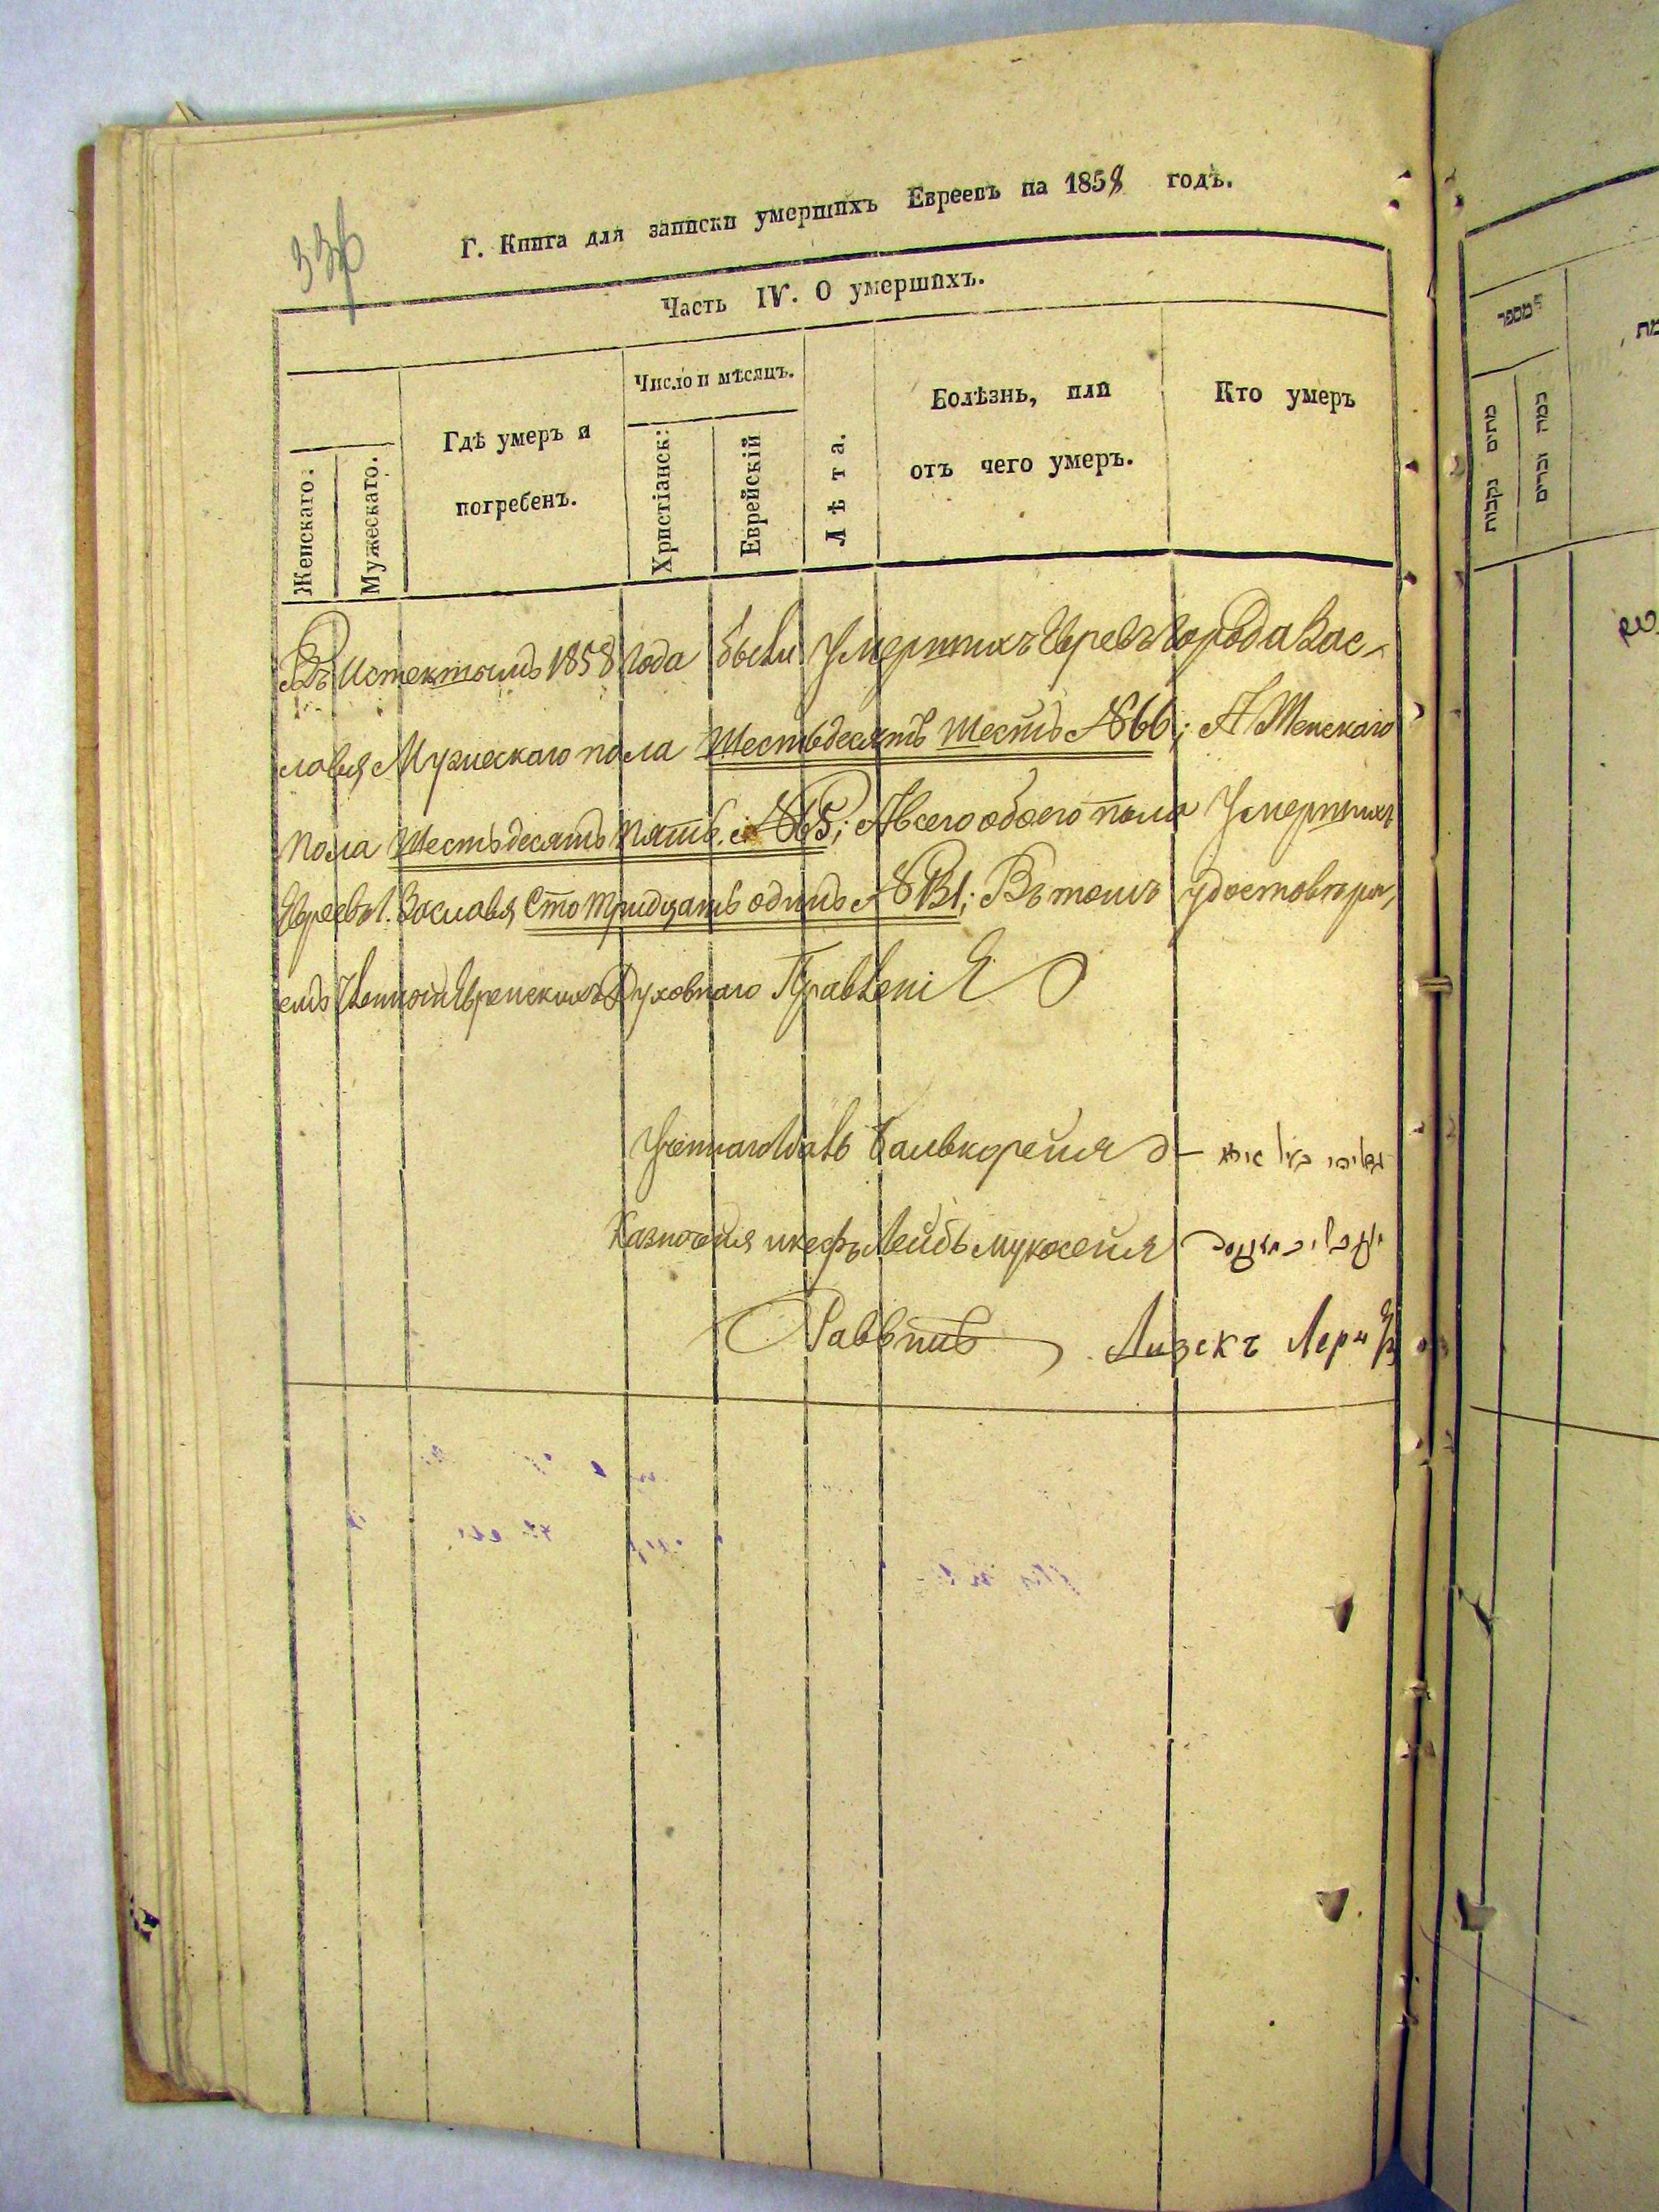 336
Г. Книга для записки умершихъ Евреевъ на 1858 годъ.
Часть IV. О умершихъ.
Женскаго:
Мужескаго.
Гдѣ умеръ и
погребенъ.
Число и мѣсяцъ.
Христіанск:
Еврейскій
Лѣта.
Болѣзнь, или
отъ чего умеръ.
Кто умеръ
Въ Истектомъ 1858 Года были Умершихъ Евреевъ Города Зас-
лавя Мужескаго пола Шестьдесятъ Шесть №66; А Женскаго
пола Шестьдесятъ пять. №65; А всего обоего пола Умершихъ
Евреевъ г. Заславя Сто тридцать одинъ №131; Въ томъ удостовѣря,
емъ Еврейскихъ Духовнаго Правленія
Казначея Лейбъ
Раввинъ Лерн
מספר
מתים נקבות
כמה זכרים